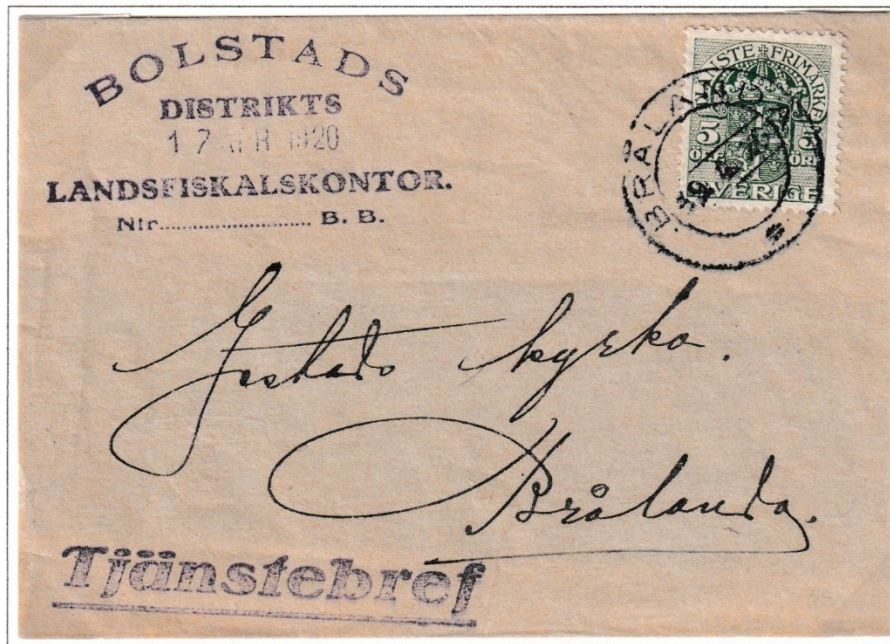 BOLSTADS
DISTRIKTS
17 APR 1920
LANDSFISKALSKONTOR.
Nir.......................... B. B.
TJÄNSTE FRIMÄRKE
5 5
ÖRE
SVERIGE
BRÅLA
Gestads kyrka.
Brålanda.
Tjänstebref